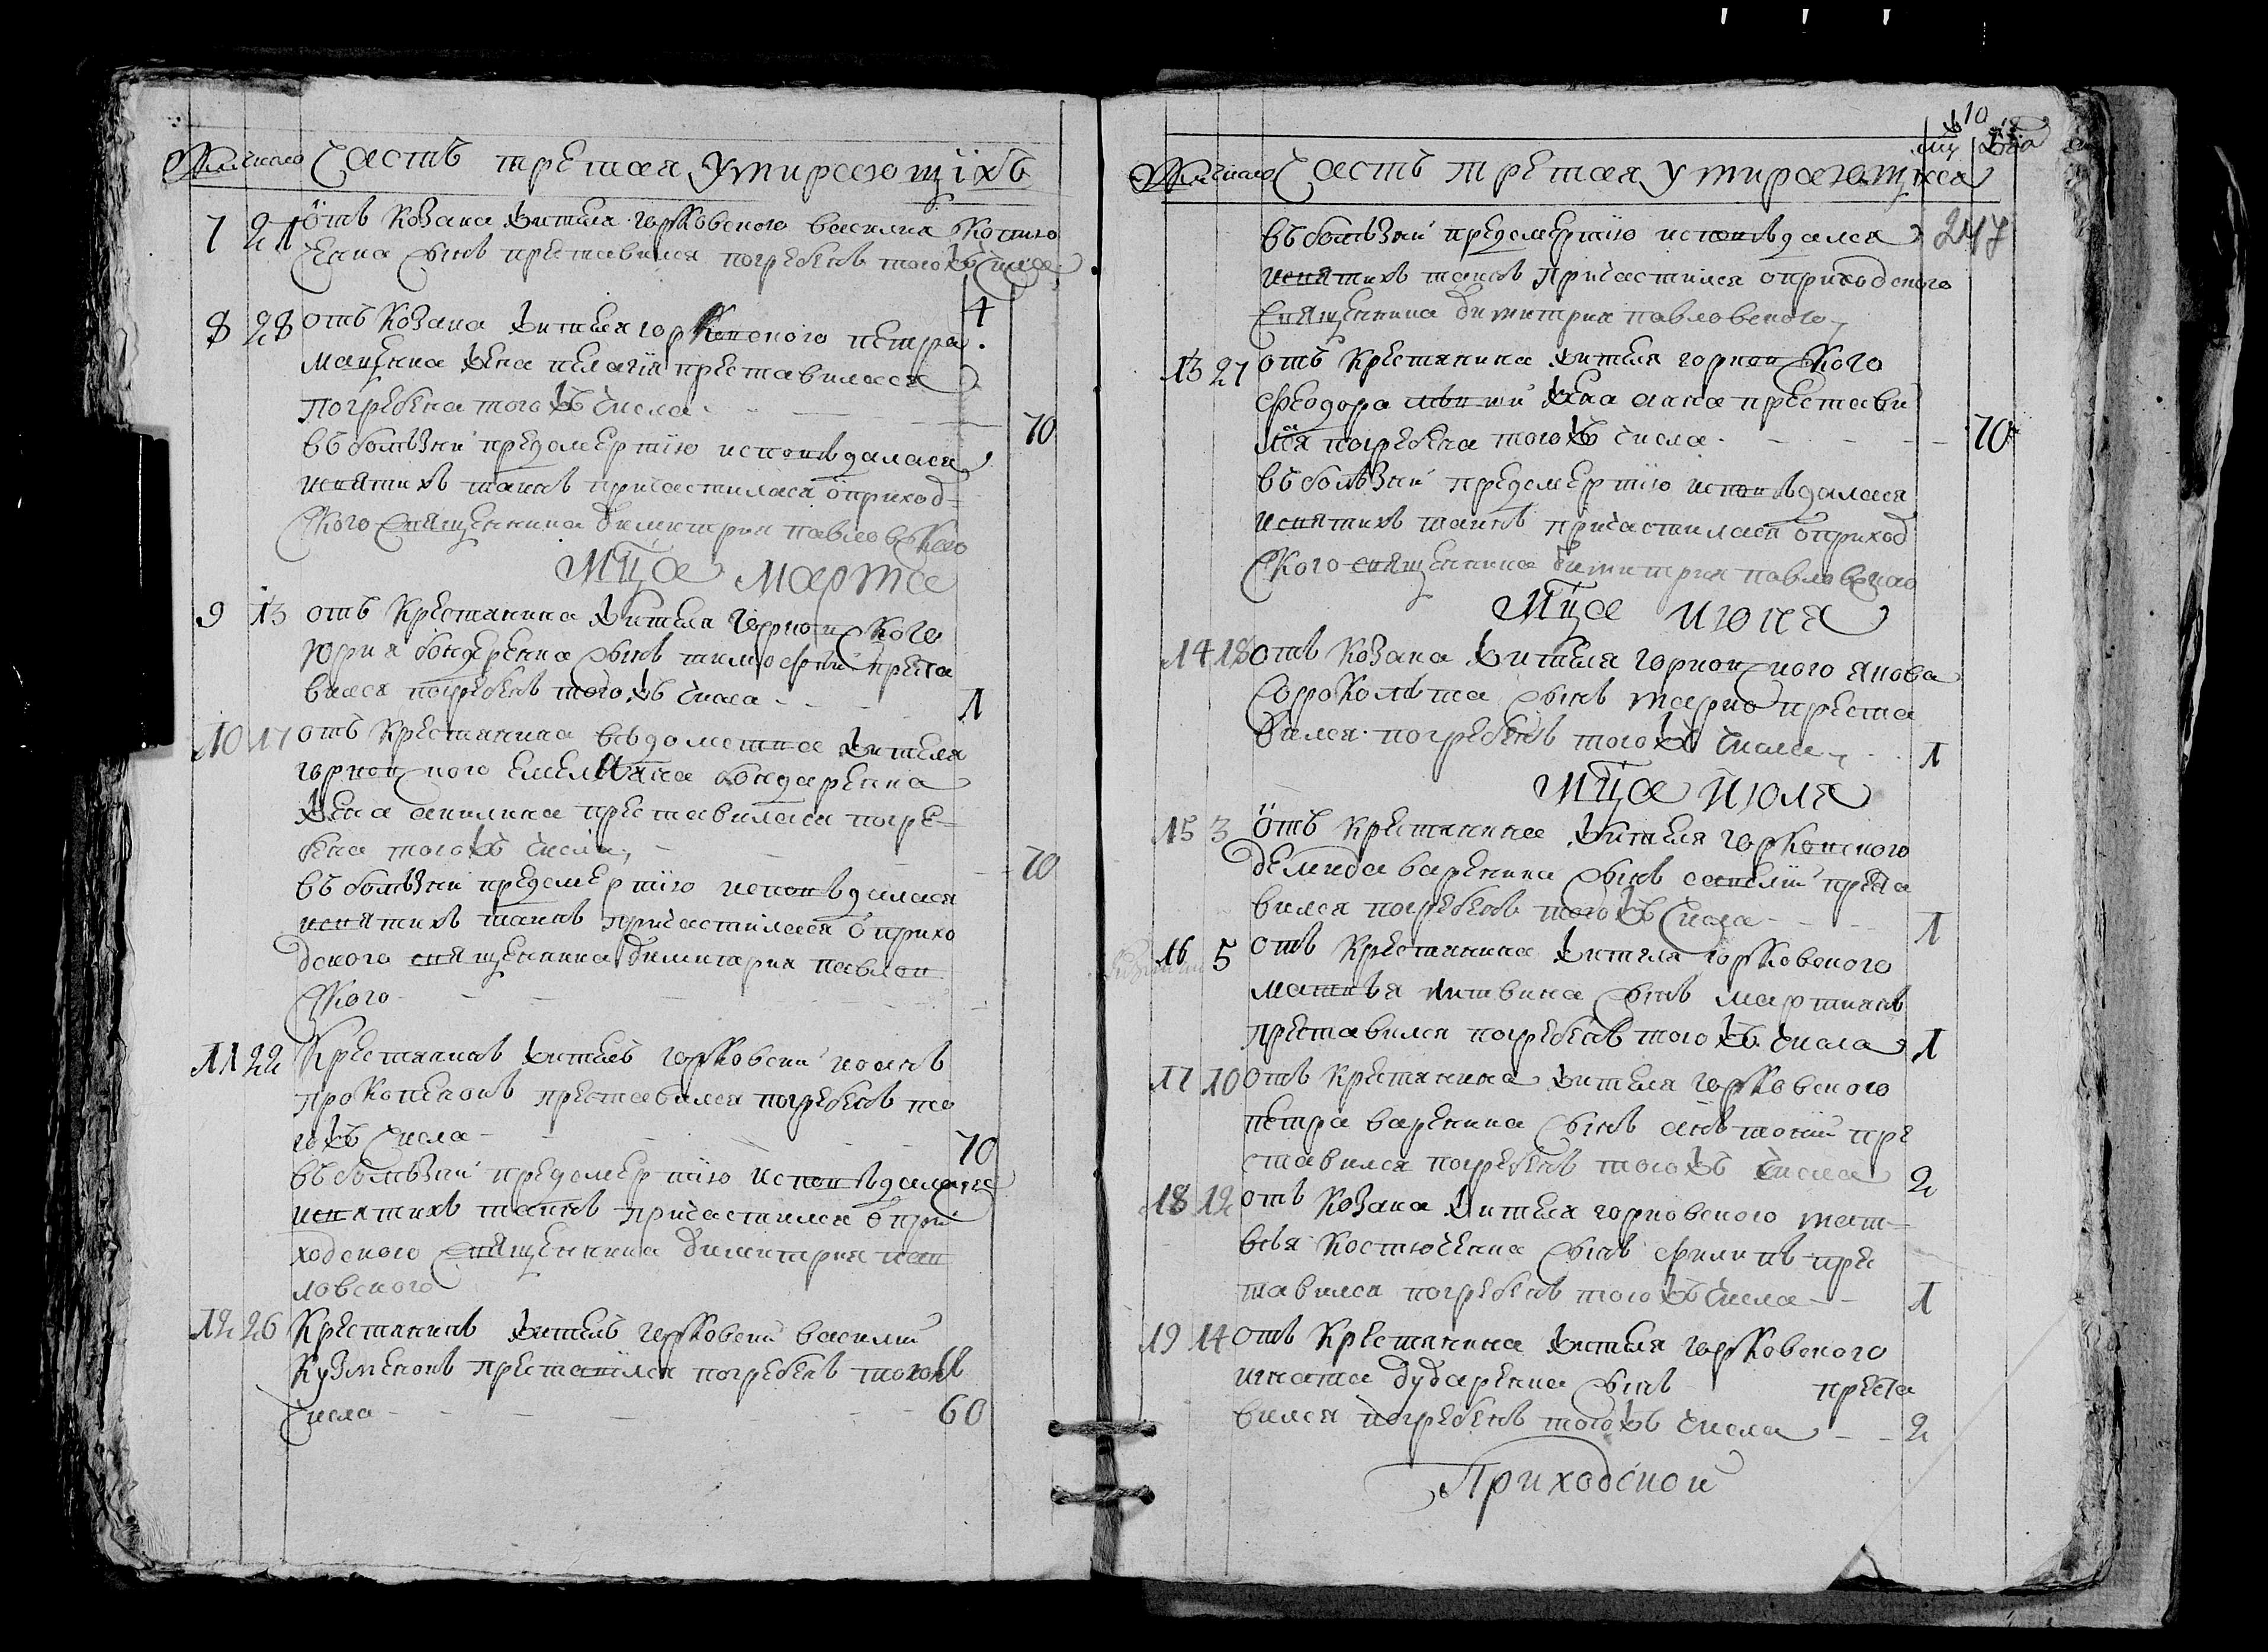 число Часть третая умирающихъ
7 21 отъ козака жителя горковского василия костю
ченка сынъ преставился погребенъ того жъ числа
4
8 28 отъ козака жителя горковского петра
маценка жена пелагия преставилася
погребена того жъ числа 70
въ болѣзни предсмертию исповѣдалася
и святихъ таинъ причастилася от приход
ского священника димитрия павловского
Мца марта
9 13 отъ крестянина жителя горковского
юрия бондаренка сынъ тимофей преста
вился погребенъ того жъ числа 1
10 17 отъ крестянина жителя
горковского емелъяна бондаренка
жена акилина преставилася погре-
бена того жъ числа 70
въ болѣзни предсмертию исповѣдалася
и святихъ таинъ причастилася от прихо
дского священника димитрия павлов
ского
11 22 Крестянинъ житель горковский иоанъ
прокопенковъ преставился погребенъ то
го жъ числа 70
въ болѣзни предсмертию исповѣдался
и святихъ таинъ причастился от при
ходского священника димитрия пав
ловского
12 26 Крестянинъ житель горковский василий
кузменковъ преставился погребенъ того жъ
числа 60
10
число Часть третая умирающихъ
въ болѣзни предсмертию исповѣдался 247
и святихъ таинъ причастился от приходского
священника димитрия павловского
13 27 отъ крестянина жителя горковского
феодора жена анна престави
лася погребена того жъ числа 70
въ болѣзни предсмертию исповѣдалася
и святихъ таинъ причастилася от приход
ского священника димитрия павловского
Мца июня
14 18 отъ козака жителя горковского якова
сороколѣта сынъ марко преста
вился погребенъ того жъ числа 1
Мца июля
15 3 отъ крестянина жителя горковского
демида вареника сынъ савелий преста
вился погребенъ того жъ числа 1
16 5 отъ крестянина жителя горковского
матвѣя литвина сынъ мартинъ
преставился погребенъ того жъ числа 1
17 10 отъ крестянина жителя горковского
петра вареника сынъ антоний пре
ставился погребенъ того жъ числа 2
18 12 отъ козака жителя горковского мат-
вѣя костюченка сынъ филипъ прес
тавился погребенъ того жъ числа 1
19 14 отъ крестянина жителя горковского
игната дударенка сынъ преста
вился погребенъ того жъ числа 2
Приходской